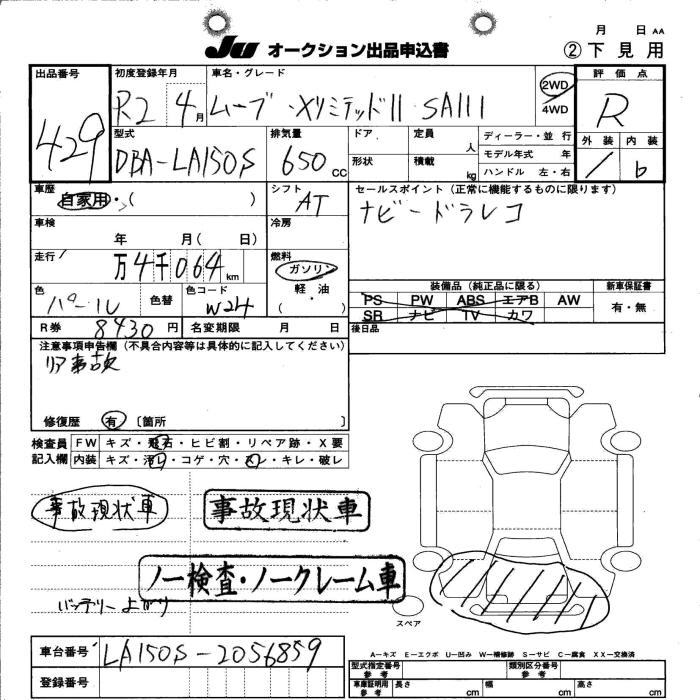 月 日 AA
JU オークション出品申込書 ②下見用
出品番号 初度登録年月 車名・グレード 2WD 4WD 評価点
429 R2 4月 ムーブ・XリミテッドII SAIII R
型式 排気量 ドア 定員 人 ディーラー・並行 外装 内装
DBA-LA150S 650cc 形状 積載 kg モデル年式 年 1 b
ハンドル 左・右
車歴 シフト セールスポイント(正常に機能するものに限ります)
自家用・( ) AT ナビードラレコ
車検 年 月( 日) 冷房
走行 万4千064km 燃料
ガソリン
軽油
・
( )
色 パール 色替 色コード W24
装備品(純正品に限る) 新車保証書
PS PW ABS エアB AW 有・無
SR ナビ TV カワ
R券 8430円 名変期限 月 日 後日品
注意事項申告欄(不具合内容等は具体的に記入してください)
リア事故
修復歴 有 〔箇所 〕
検査員 FW キズ・飛石・ヒビ割・リペア跡・X要
記入欄 内装 キズ・汚レ・コゲ・穴・スレ・キレ・破レ
事故現状車 事故現状車
ノー検査・ノークレーム車
バッテリー上がり
スペア
車台番号 LA150S-2056859
登録番号
A-キズ E-エクボ U-凹み W-補修跡 S-サビ C-腐食 XX-交換済
型式指定番号 参考 類別区分番号 参考
車庫証明用 参考 長さ cm 幅 cm 高さ cm